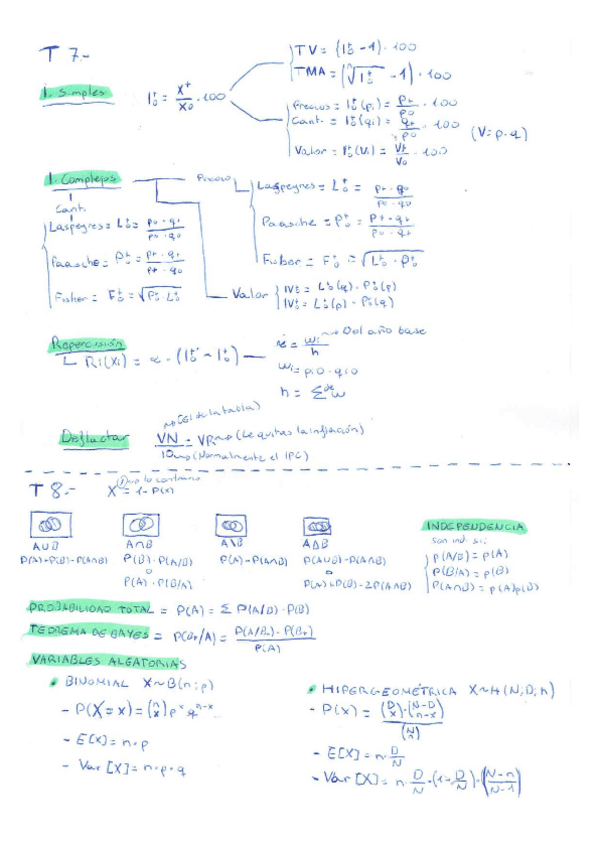 T 7.-
TV = (I₀ᵗ - 1) · 100
TMA = (ⁿ√I₀ᵗ - 1) · 100
I. Simples
I₀ᵗ = Xᵗ/X₀ · 100
Precios = I₀ᵗ(pᵢ) = pₜ/p₀ · 100
Cant. = I₀ᵗ(qᵢ) = qₜ/p₀ · 100
(V = p · q)
Valor = I₀ᵗ(Vᵢ) = Vₜ/V₀ · 100
I. Complejos
Precio
Laspeyres = L₀ᵗ = pₜ · q₀ / p₀ · q₀
Paasche = P₀ᵗ = pₜ · qₜ / p₀ · qₜ
Fisher = F₀ᵗ = √L₀ᵗ · P₀ᵗ
Cant.
Laspeyres = L₀ᵗ = p₀ · qₜ / p₀ · q₀
Paasche = P₀ᵗ = pₜ · qₜ / pₜ · q₀
Fisher = F₀ᵗ = √P₀ᵗ · L₀ᵗ
Valor
IV₀ᵗ = L₀ᵗ(q) · P₀ᵗ(p)
IV₀ᵗ = L₀ᵗ(p) · P₀ᵗ(q)
Repercusión
Ri(Xi) = α · (I₀ᵗ' - I₀ᵗ)
α = wᵢ/h → 0 del año base
wᵢ = pᵢ0 · qᵢ0
h = Σ de w
Deflactar
(El de la tabla)
VN = VR → (Le quitas la inflación)
(Normalmente el IPC)
T 8.-
X̄ = 1 - P(X)
A∪B
P(A)+P(B)-P(A∩B)
A∩B
P(B) · P(A/B)
o
P(A) · P(B/A)
A\B
P(A)-P(A∩B)
A∆B
P(A∪B)-P(A∩B)
o
P(A)+P(B)-2P(A∩B)
INDEPENDENCIA
son ind. si:
p(A/B) = p(A)
p(B/A) = p(B)
P(A∩B) = p(A)p(B)
PROBABILIDAD TOTAL = P(A) = Σ P(A/B) · P(B)
TEOREMA DE BAYES = P(Bₜ/A) = P(A/Bₜ) · P(Bₜ) / P(A)
VARIABLES ALEATORIAS
• BINOMIAL X∼B(n;p)
- P(X=x) = (n x) pˣ qⁿ⁻ˣ
- E[X] = n · p
- Var [X] = n · p · q
• HIPERGEOMÉTRICA X∼H(N;D;n)
- P(x) = (D x) · (N-D n-x) / (N n)
- E[X] = n · D/N
- Var [X] = n · D/N · (1 - D/N) · (N-n/N-1)